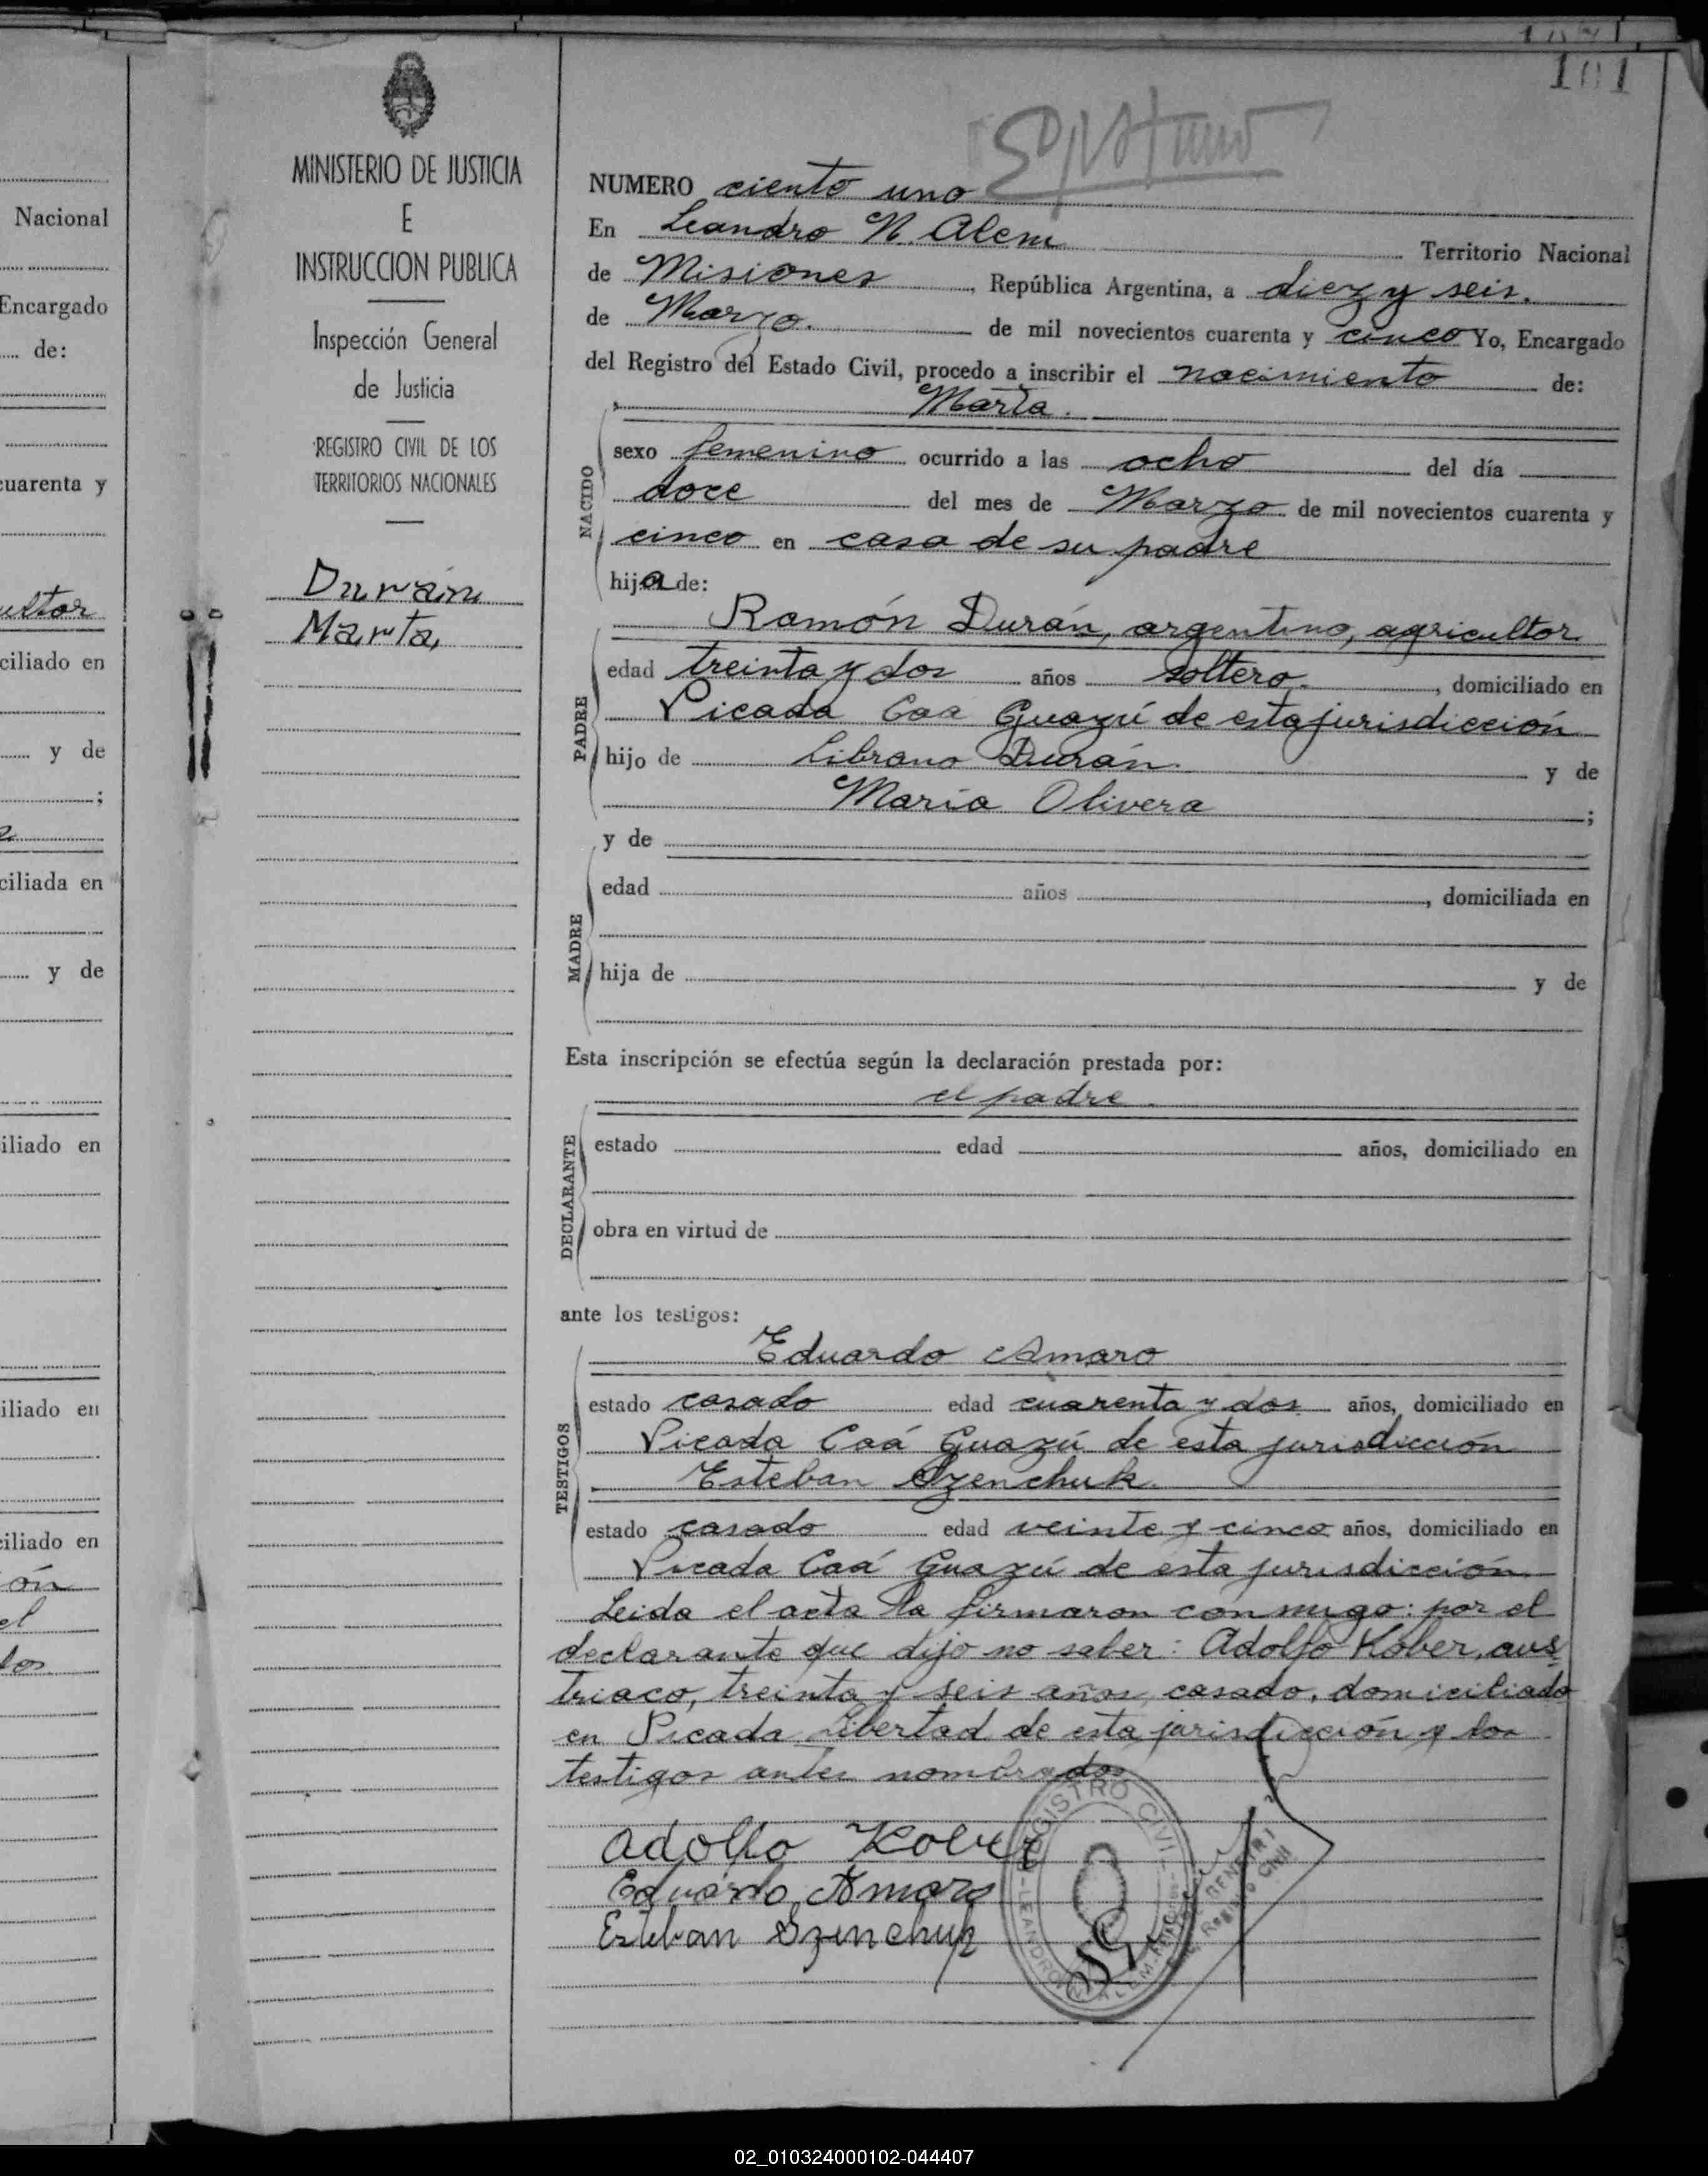 101
MINISTERIO DE JUSTICIA
E
INSTRUCCION PUBLICA
Inspección General
de Justicia
REGISTRO CIVIL DE LOS
TERRITORIOS NACIONALES
Durán
Marta,
NUMERO ciento uno
En Leandro N. Alem Territorio Nacional
de Misiones, República Argentina, a diez y seis.
de Marzo. de mil novecientos cuarenta y cinco Yo, Encargado
del Registro del Estado Civil, procedo a inscribir el nacimiento de:
Marta.
NACIDO
sexo femenino ocurrido a las ocho del día
doce del mes de Marzo de mil novecientos cuarenta y
cinco en casa de su padre
hija de:
Ramón Durán, argentino, agricultor
PADRE
edad treinta y dos años soltero, domiciliado en
Picada Caa Guazú de esta jurisdicción
hijo de Librano Durán. y de
María Olivera ;
y de
MADRE
edad años , domiciliada en
hija de y de
Esta inscripción se efectúa según la declaración prestada por:
el padre
DECLARANTE
estado edad años, domiciliado en
obra en virtud de
ante los testigos:
Eduardo Amaro
TESTIGOS
estado casado edad cuarenta y dos años, domiciliado en
Picada Caá Guazú de esta jurisdicción
Esteban Szenchuk
estado casado edad veinte y cinco años, domiciliado en
Picada Caá Guazú de esta jurisdicción
Leida el acta la firmaron conmigo: por el
declarante que dijo no saber: Adolfo Kober, aus
triaco, treinta y seis años, casado, domiciliado
en Picada Libertad de esta jurisdicción y los
testigos antes nombrados
Adolfo Kober
Eduardo Amaro
Esteban Szenchuk
REGISTRO CIVIL
LEANDRO N. ALEM
Registro Civil
Nacional
Encargado
de:
cuarenta y
ultor
ciliado en
y de
;
ciliada en
y de
iliado en
iliado en
ciliado en
ón
el
los
02_010324000102-044407